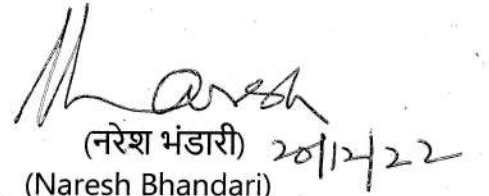 Naresh
(नरेश भंडारी) 20/12/22
(Naresh Bhandari)